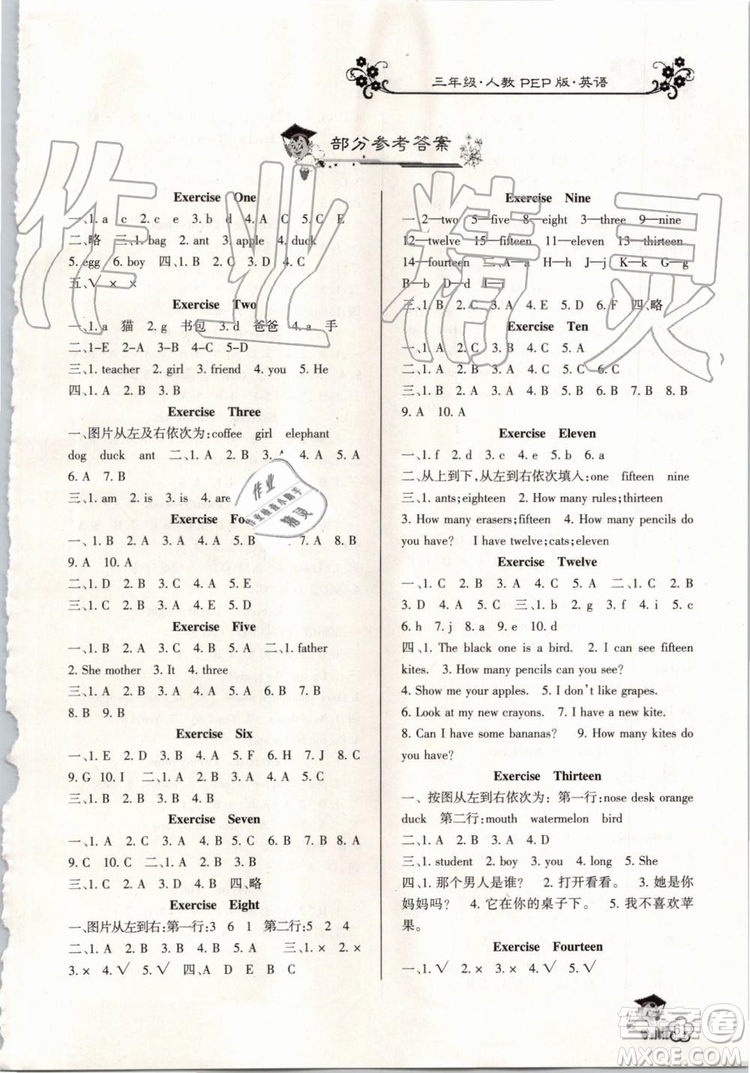 三年级·人教PEP版·英语
部分参考答案
Exercise One
一、1. a c 2. c e 3. b d 4. A C 5. C E
二、略 三、1. bag 2. ant 3. apple 4. duck
5. egg 6. boy 四、1. B 2. A 3. A 4. A
五、√ × ×
Exercise Two
一、1. a 猫 2. g 书包 3. d 爸爸 4. a 手
二、1-E 2-A 3-B 4-C 5-D
三、1. teacher 2. girl 3. friend 4. you 5. He
四、1. A 2. B 3. B
Exercise Three
一、图片从左及右依次为:coffee girl elephant
dog duck ant 二、1. A 2. B 3. A 4. A 5. A
6. A 7. B
三、1. am 2. is 3. is 4. are
Exercise
一、1. B 2. A 3. B 7. B 8. B
9. A 10. A
二、1. D 2. B 3. C 4. A 5. E
三、1. C 2. D 3. A 4. E 5. B
Exercise Five
一、1. B 2. A 3. B 4. A 二、1. father
2. She mother 3. It 4. three
三、1. B 2. A 3. A 4. A 5. A 6. A 7. A
8. B 9. B
Exercise Six
一、1. E 2. D 3. B 4. A 5. F 6. H 7. C 8. J
9. G 10. I 二、1. A 2. C 3. A 4. A 5. C
三、1. B 2. A 3. A 4. B 5. A
Exercise Seven
一、1. B 2. A 3. B 4. A 5. A 6. B 7. B 8. A
9. C 10. C 二、1. B 2. A 3. B 4. B 5. B
三、1. A 2. C 3. D 4. B 四、略
Exercise Eight
一、图片从左到右:第一行:3 6 1 第二行:5 2 4
二、1. A 2. B 3. A 4. B 5. A 三、1. × 2. ×
3. × 4. √ 5. √ 四、A D E B C
Exercise Nine
一 2—two 5—five 8—eight 3—three 9—nine
12—twelve 15—fifteen 11—eleven 13—thirteen
14—fourteen 二、I—i O—o P—p J—j K—k G—g
三、1. B 2. C 3. A 4. E 5. D 6. F 四、略
Exercise Ten
一、1. A 2. B 3. C 4. C 二、
三、1. A 2. B 3. C 4. B 5. C 6. C
四、1. B 2. A 3. A 4. B 5. A 6. B 7. B 8. B
9. A 10. A
Exercise Eleven
一、1. f 2. c 3. b 4. e 5. d 6. a
二、从上到下,从左到右依次填入:one fifteen nine
三、1. ants;eighteen 2. How many rules;thirteen
3. How many erasers;fifteen 4. How many pencils do
you have? I have twelve;cats;eleven
Exercise Twelve
一、1. C 2. A 3. A 4. C 5. C 二、1. B 2. A
3. D 4. E 5. C 三、1. b 2. c 3. a 4. e 5. g
6. h 7. j 8. f 9. i 10. d
四、1. The black one is a bird. 2. I can see fifteen
kites. 3. How many pencils can you see?
4. Show me your apples. 5. I don't like grapes.
6. Look at my new crayons. 7. I have a new kite.
8. Can I have some bananas? 9. How many kites do
you have?
Exercise Thirteen
一、按图从左到右依次为:第一行:nose desk orange
duck 第二行:mouth watermelon bird
二、1. C 2. B 3. A 4. D
三、1. student 2. boy 3. you 4. long 5. She
四、1. 那个男人是谁? 2. 打开看看。 3. 她是你
妈妈吗? 4. 它在你的桌子下。 5. 我不喜欢苹
果。
Exercise Fourteen
一、1. √ 2. × 3. × 4. √ 5. √
作业精灵
答案圈
MXQE.COM